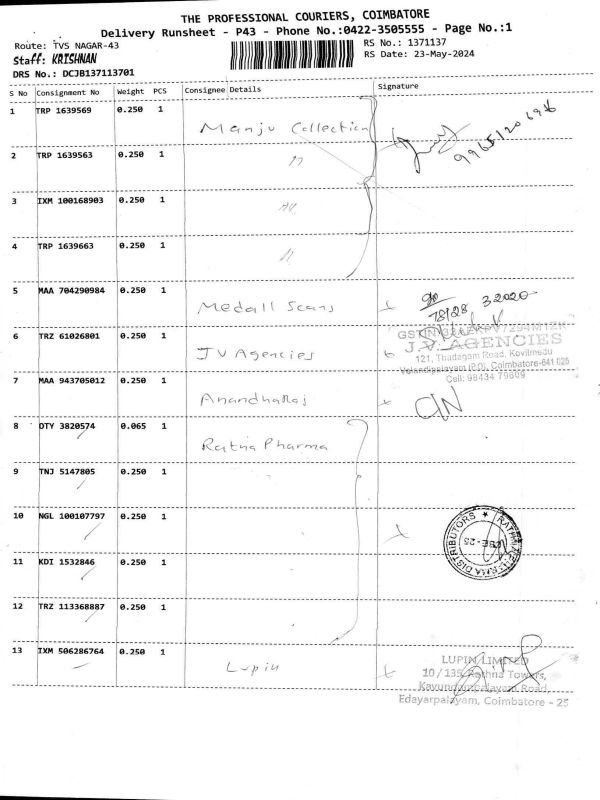 THE PROFESSIONAL COURIERS, COIMBATORE
Delivery Runsheet - P43 - Phone No.:0422-3505555 - Page No.:1
Route: TVS NAGAR-43
RS No.: 1371137
Staff: KRISHNAN
RS Date: 23-May-2024
DRS No.: DCJB137113701
S No Consignment No Weight PCS Consignee Details Signature
1 TRP 1639569 0.250 1 Manju Collection
2 TRP 1639563 0.250 1 "
3 IXM 100168903 0.250 1
4 TRP 1639663 0.250 1 "
5 MAA 704290984 0.250 1 Medall Scans
6 TRZ 61026801 0.250 1 JV Agencies
J.V. AGENCIES
121, Thadagam Road, Kovilmedu
Velandipalayam (PO), Coimbatore-641 025
Cell: 98434 79809
7 MAA 943705012 0.250 1 Anandharaj
8 DTY 3820574 0.065 1 Ratna Pharma
9 TNJ 5147805 0.250 1
10 NGL 100107797 0.250 1
CBE-25
11 KDI 1532846 0.250 1
12 TRZ 113368887 0.250 1
13 IXM 506286764 0.250 1 Lupin
LUPIN LIMITED
10 / 135, Rathna Towers,
Kavundampalayam Road,
Edayarpalayam, Coimbatore - 25